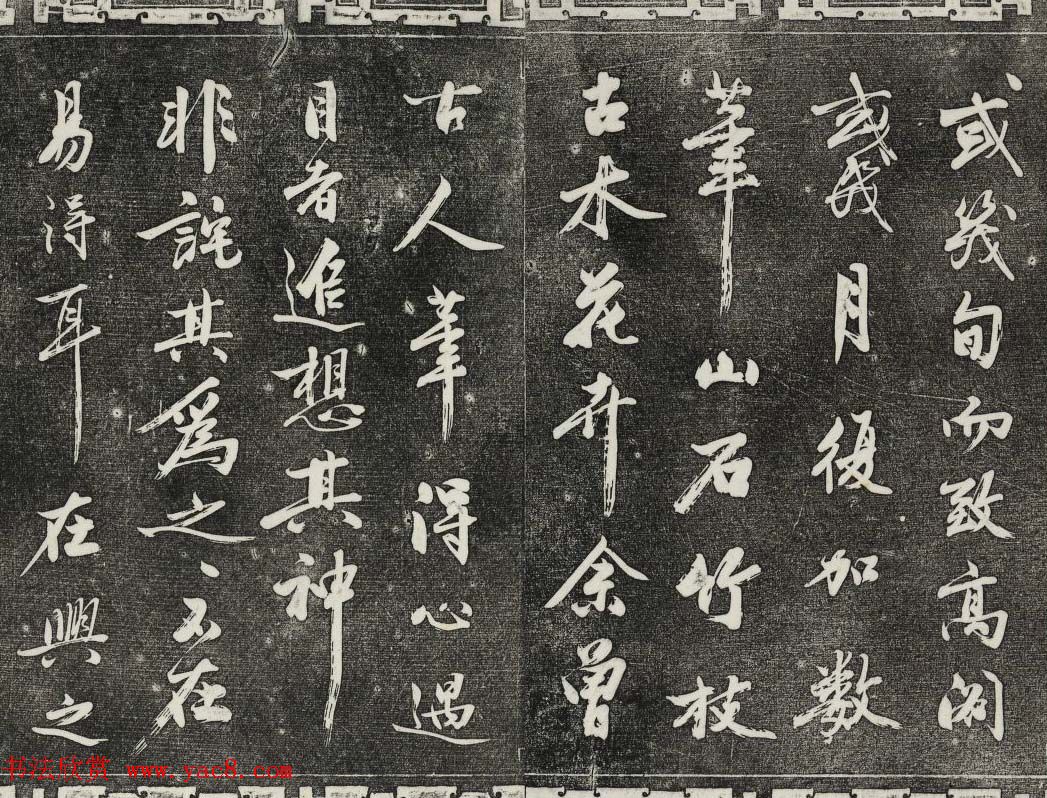 或幾旬而致高閣
或幾月後加數
筆山石竹枝
古木花卉余曾
古人筆得心遇
目者追想其神
非詫其為之〻不在
易得耳在興之
书法欣赏 www.yac8.com